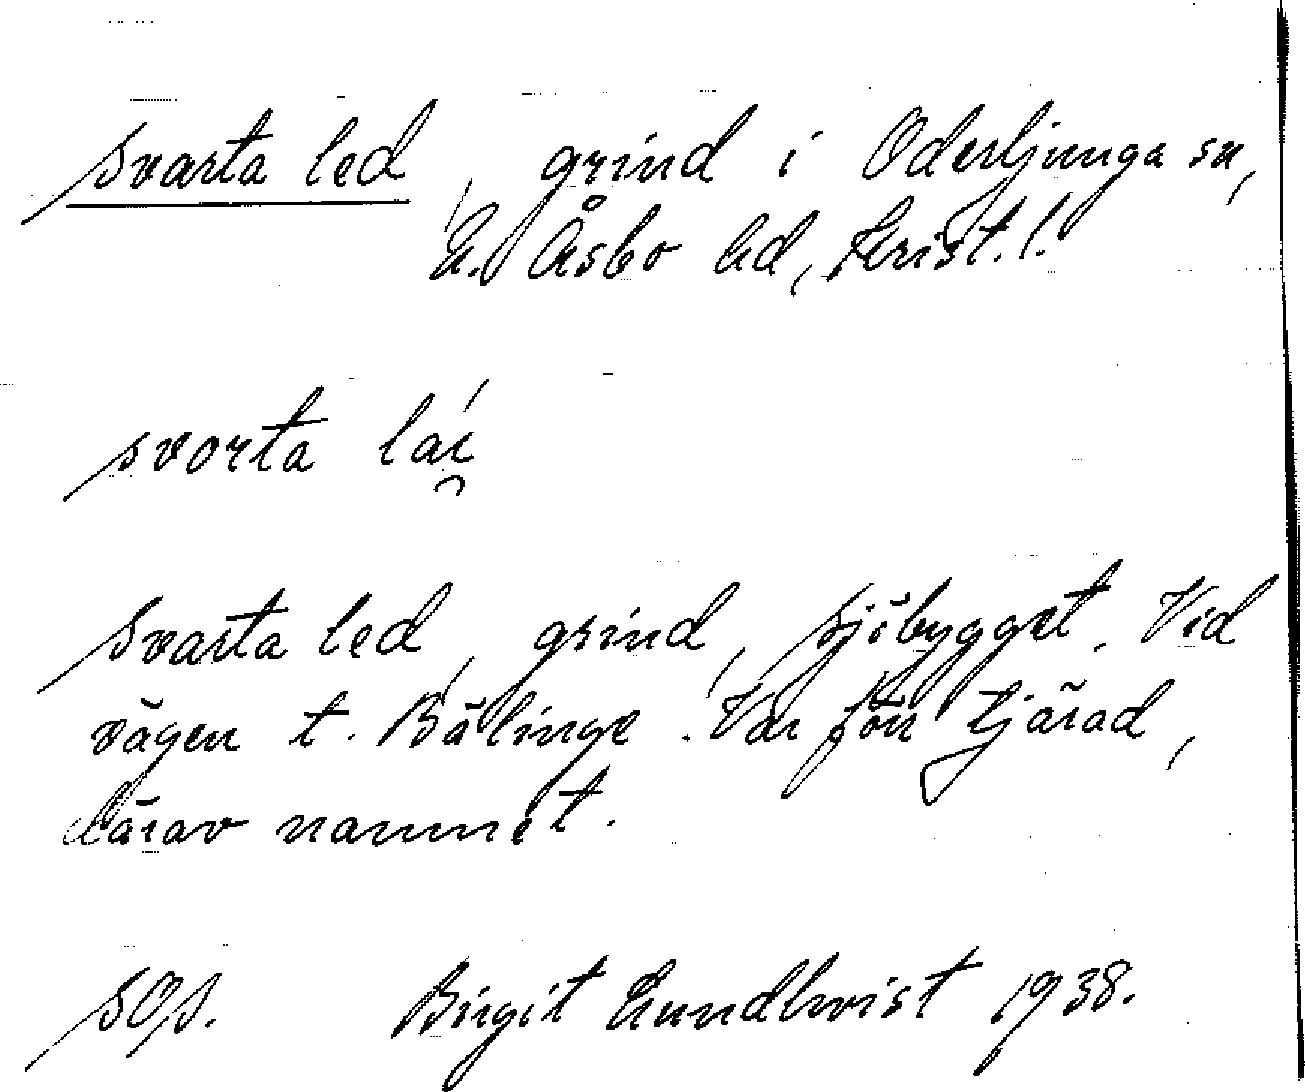 svarta led, grind i Oderljunga sn,
N. Åsbo hd, Krist. l.
svorta laí̯
Svarta led, grind, Sjöbygget. Vid
vägen t. Bälinge. Var förr tjärad,
därav namnet.
SOS. Birgit Lundkvist 1938.